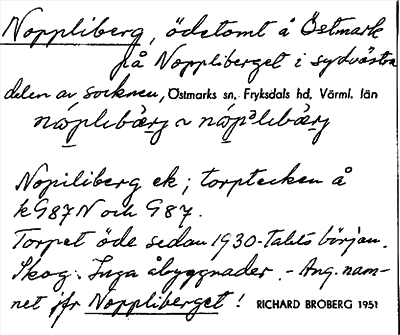 Noppliberg, ödetomt å Östmark
på Noppliberget i sydvästra
delen av socknen, Östmarks sn, Fryksdals hd, Värml. län
Nopiliberg ek; torptecken å
k G87 N och G87.
Torpet öde sedan 1930-talets början.
Skog. Inga åbyggnader. - Ang. nam-
net jfr Noppliberget! RICHARD BROBERG 1951